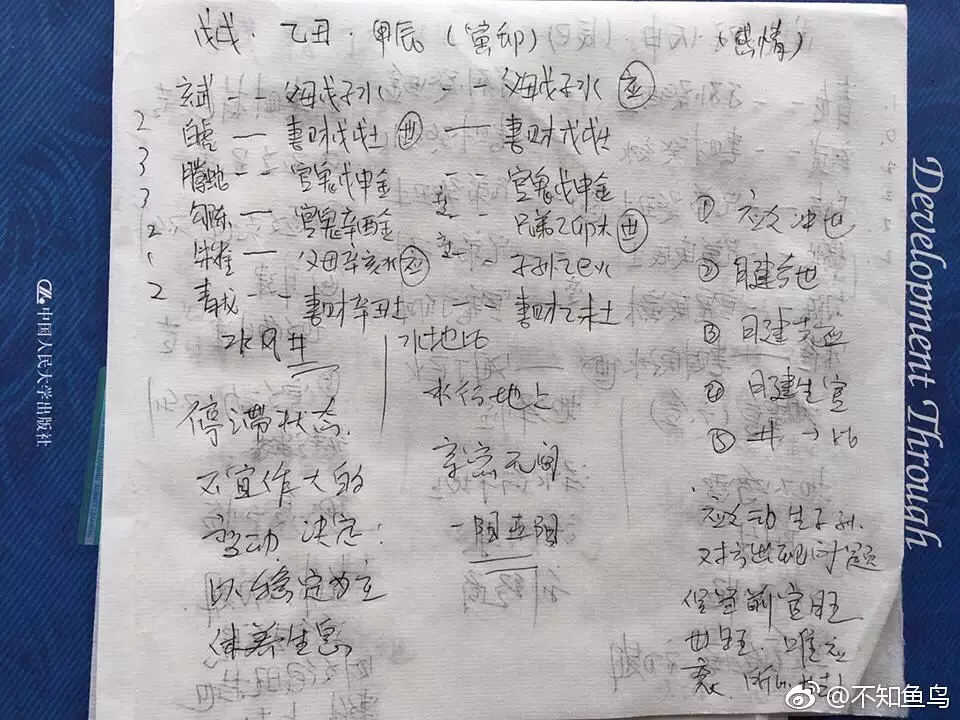 戊戌·乙丑·甲辰(寅卯) (感情)
玄武 -- 父母戊子水 -- 父母戊子水 应
2 白虎 — 妻财戊戌土 世 — 妻财戊戌土
3 腾蛇 -- 官鬼戊申金 -- 官鬼戊申金
3 勾陈 — 官鬼辛酉金 -- 兄弟乙卯木 世
2 朱雀 — 父母辛亥水 应 -- 子孙乙巳火
2 青龙 -- 妻财辛丑土 妻财乙未土
水风井 水地比
停滞状态.
不宜作大的
变动 决定:
以稳定为主
休养生息
水行地上
亲密无间
一阳五阴
① 应爻冲世
② 日建合世
③ 日建克应
④ 日建生官
⑤ 井→比
应爻动生子孙.
对方出现问题
但当前官旺
世旺. 唯应
衰.
中国人民大学出版社
Development Through
@不知鱼鸟